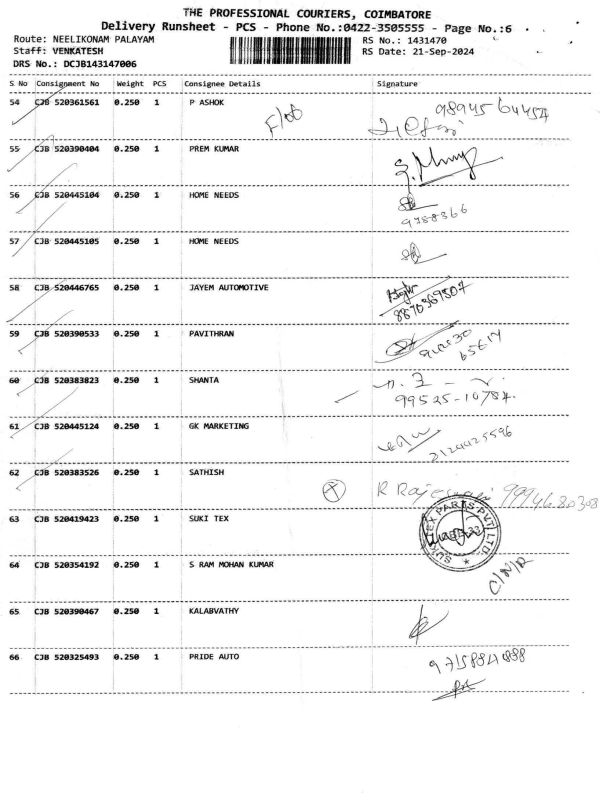 THE PROFESSIONAL COURIERS, COIMBATORE
Delivery Runsheet - PCS - Phone No.:0422-3505555 - Page No.:6
Route: NEELIKONAM PALAYAM RS No.: 1431470
Staff: VENKATESH RS Date: 21-Sep-2024
DRS No.: DCJB143147006
S No Consignment No Weight PCS Consignee Details Signature
54 CJB 520361561 0.250 1 P ASHOK
55 CJB 520390404 0.250 1 PREM KUMAR
56 CJB 520445104 0.250 1 HOME NEEDS
9788366
57 CJB 520445105 0.250 1 HOME NEEDS
58 CJB 520446765 0.250 1 JAYEM AUTOMOTIVE
8870369507
59 CJB 520390533 0.250 1 PAVITHRAN
60 CJB 520383823 0.250 1 SHANTA
99525-10784
61 CJB 520445124 0.250 1 GK MARKETING
2124425596
62 CJB 520383526 0.250 1 SATHISH
R Rajeswari 9994680308
63 CJB 520419423 0.250 1 SUKI TEX
SUKI TEX PARTS PVT LTD.
64 CJB 520354192 0.250 1 S RAM MOHAN KUMAR
C/N/R
65 CJB 520390467 0.250 1 KALABVATHY
66 CJB 520325493 0.250 1 PRIDE AUTO